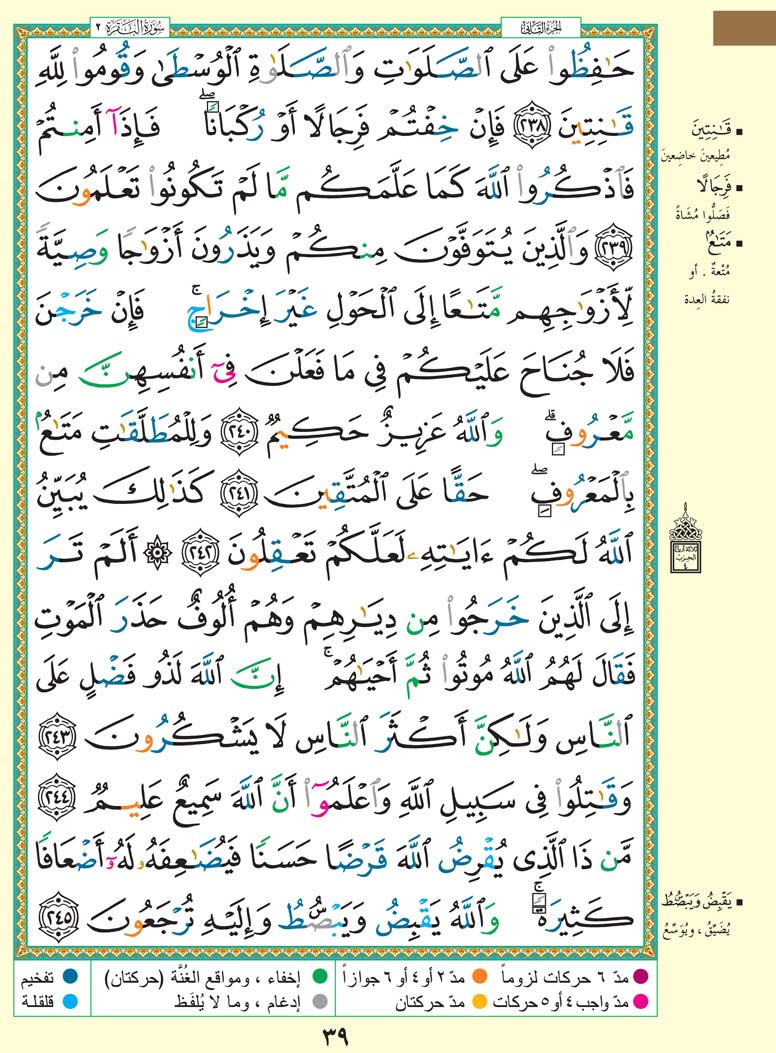 سُورَةُ البَقَرَةِ ٢
الجُزْءُ الثَّانِي
حَـٰفِظُوا۟ عَلَى ٱلصَّلَوَٰتِ وَٱلصَّلَوٰةِ ٱلْوُسْطَىٰ وَقُومُوا۟ لِلَّهِ
قَـٰنِتِينَ ٢٣٨ فَإِنْ خِفْتُمْ فَرِجَالًا أَوْ رُكْبَانًا ۖ فَإِذَآ أَمِنتُمْ
فَٱذْكُرُوا۟ ٱللَّهَ كَمَا عَلَّمَكُم مَّا لَمْ تَكُونُوا۟ تَعْلَمُونَ
٢٣٩ وَٱلَّذِينَ يُتَوَفَّوْنَ مِنكُمْ وَيَذَرُونَ أَزْوَٰجًا وَصِيَّةً
لِّأَزْوَٰجِهِم مَّتَـٰعًا إِلَى ٱلْحَوْلِ غَيْرَ إِخْرَاجٍ ۚ فَإِنْ خَرَجْنَ
فَلَا جُنَاحَ عَلَيْكُمْ فِى مَا فَعَلْنَ فِىٓ أَنفُسِهِنَّ مِن
مَّعْرُوفٍ ۗ وَٱللَّهُ عَزِيزٌ حَكِيمٌ ٢٤٠ وَلِلْمُطَلَّقَـٰتِ مَتَـٰعٌۢ
بِٱلْمَعْرُوفِ ۖ حَقًّا عَلَى ٱلْمُتَّقِينَ ٢٤١ كَذَٰلِكَ يُبَيِّنُ
ٱللَّهُ لَكُمْ ءَايَـٰتِهِۦ لَعَلَّكُمْ تَعْقِلُونَ ٢٤٢ ۞ أَلَمْ تَرَ
إِلَى ٱلَّذِينَ خَرَجُوا۟ مِن دِيَـٰرِهِمْ وَهُمْ أُلُوفٌ حَذَرَ ٱلْمَوْتِ
فَقَالَ لَهُمُ ٱللَّهُ مُوتُوا۟ ثُمَّ أَحْيَـٰهُمْ ۚ إِنَّ ٱللَّهَ لَذُو فَضْلٍ عَلَى
ٱلنَّاسِ وَلَـٰكِنَّ أَكْثَرَ ٱلنَّاسِ لَا يَشْكُرُونَ ٢٤٣
وَقَـٰتِلُوا۟ فِى سَبِيلِ ٱللَّهِ وَٱعْلَمُوٓا۟ أَنَّ ٱللَّهَ سَمِيعٌ عَلِيمٌ ٢٤٤
مَّن ذَا ٱلَّذِى يُقْرِضُ ٱللَّهَ قَرْضًا حَسَنًا فَيُضَـٰعِفَهُۥ لَهُۥٓ أَضْعَافًا
كَثِيرَةً ۚ وَٱللَّهُ يَقْبِضُ وَيَبْصُۜطُ وَإِلَيْهِ تُرْجَعُونَ ٢٤٥
▪ قَـٰنِتِينَ
مُطِيعينَ خاضِعينَ
▪ فَرِجَالًا
فَصَلُّوا مُشَاةً
▪ مَتَـٰعٌۢ
مُتْعةٌ . أو
نفقةُ العِدة
ثلاثة أرباع
الحزب
٤
▪ يَقْبِضُ وَيَبْصُۜطُ
يُضَيِّقُ ، ويُوَسِّعُ
مدّ ٦ حركات لزوماً
مدّ ٢ أو ٤ أو ٦ جوازاً
إخفاء ، ومواقع الغُنَّة (حركتان)
تفخيم
مدّ واجب ٤ أو ٥ حركات
مدّ حركتان
إدغام ، وما لا يُلفَظ
قلقلة
٣٩